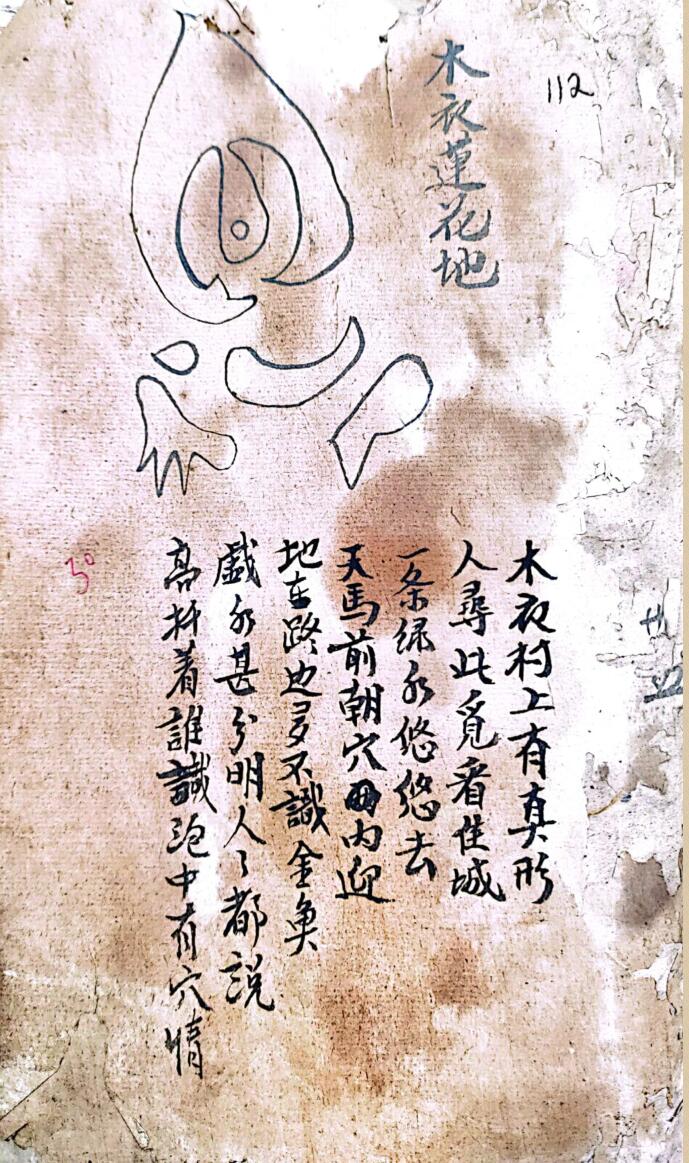 112
木衣蓮花地
木衣村上有真形
人尋此覓看佳城
一条绿水悠悠去
天馬前朝穴内迎
地在路边多不識金魚
戲水甚分明人々都説
高抔着誰識泡中有穴情
30